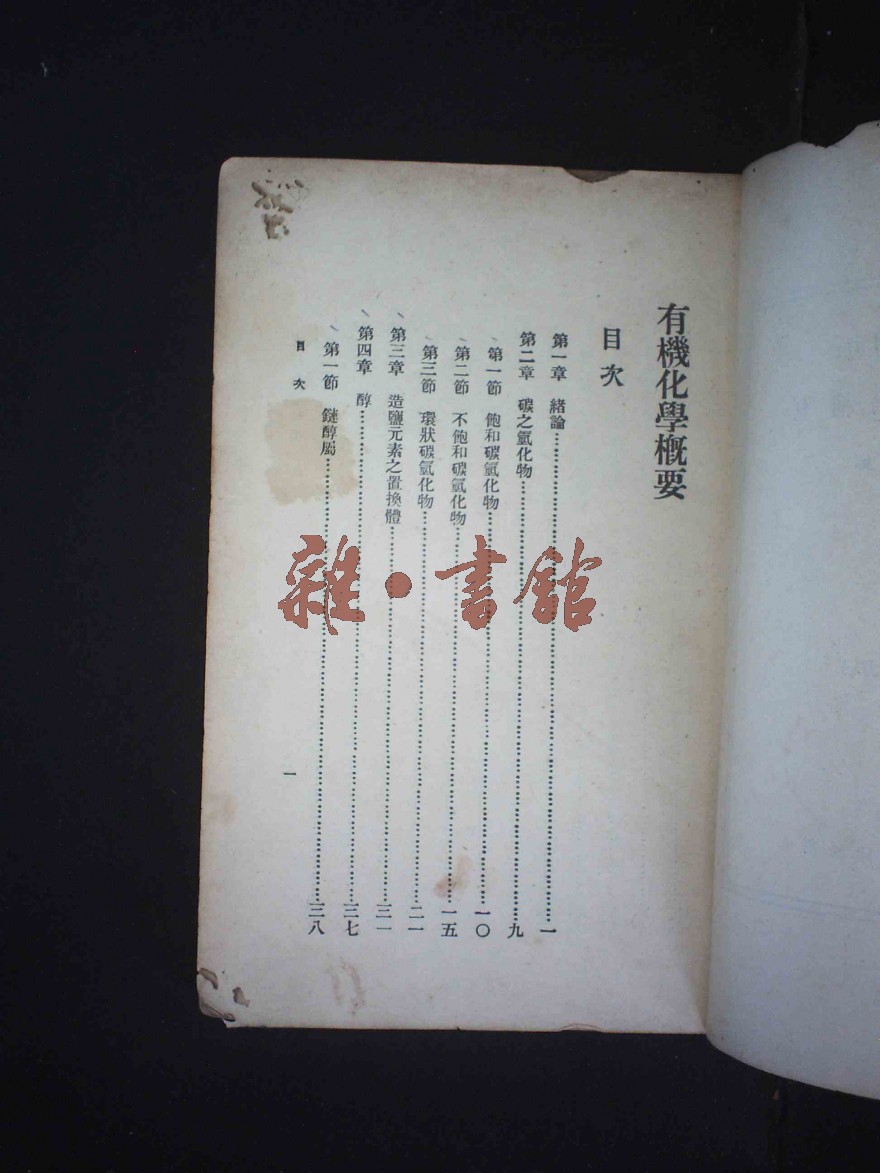 有機化學概要
目次
第一章 緒論……一
第二章 碳之氫化物……九
第一節 飽和碳氫化物……一〇
第二節 不飽和碳氫化物……一五
第三節 環狀碳氫化物……二一
第三章 造鹽元素之置換體……三一
第四章 醇……三七
第一節 鏈醇屬……三八
目次
一
雜·書館